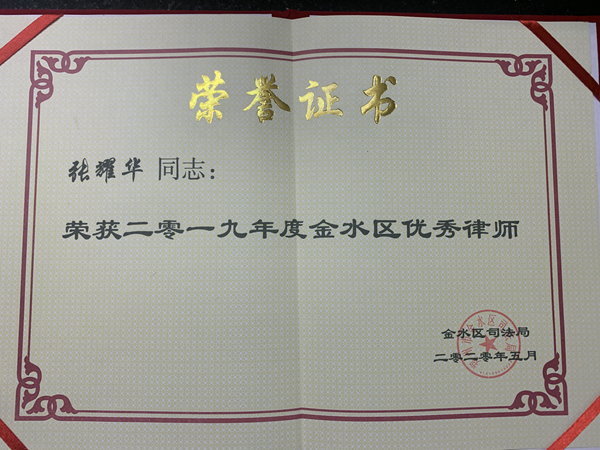 荣誉证书
张耀华 同志：
荣获二零一九年度金水区优秀律师
金水区司法局
二零二零年五月